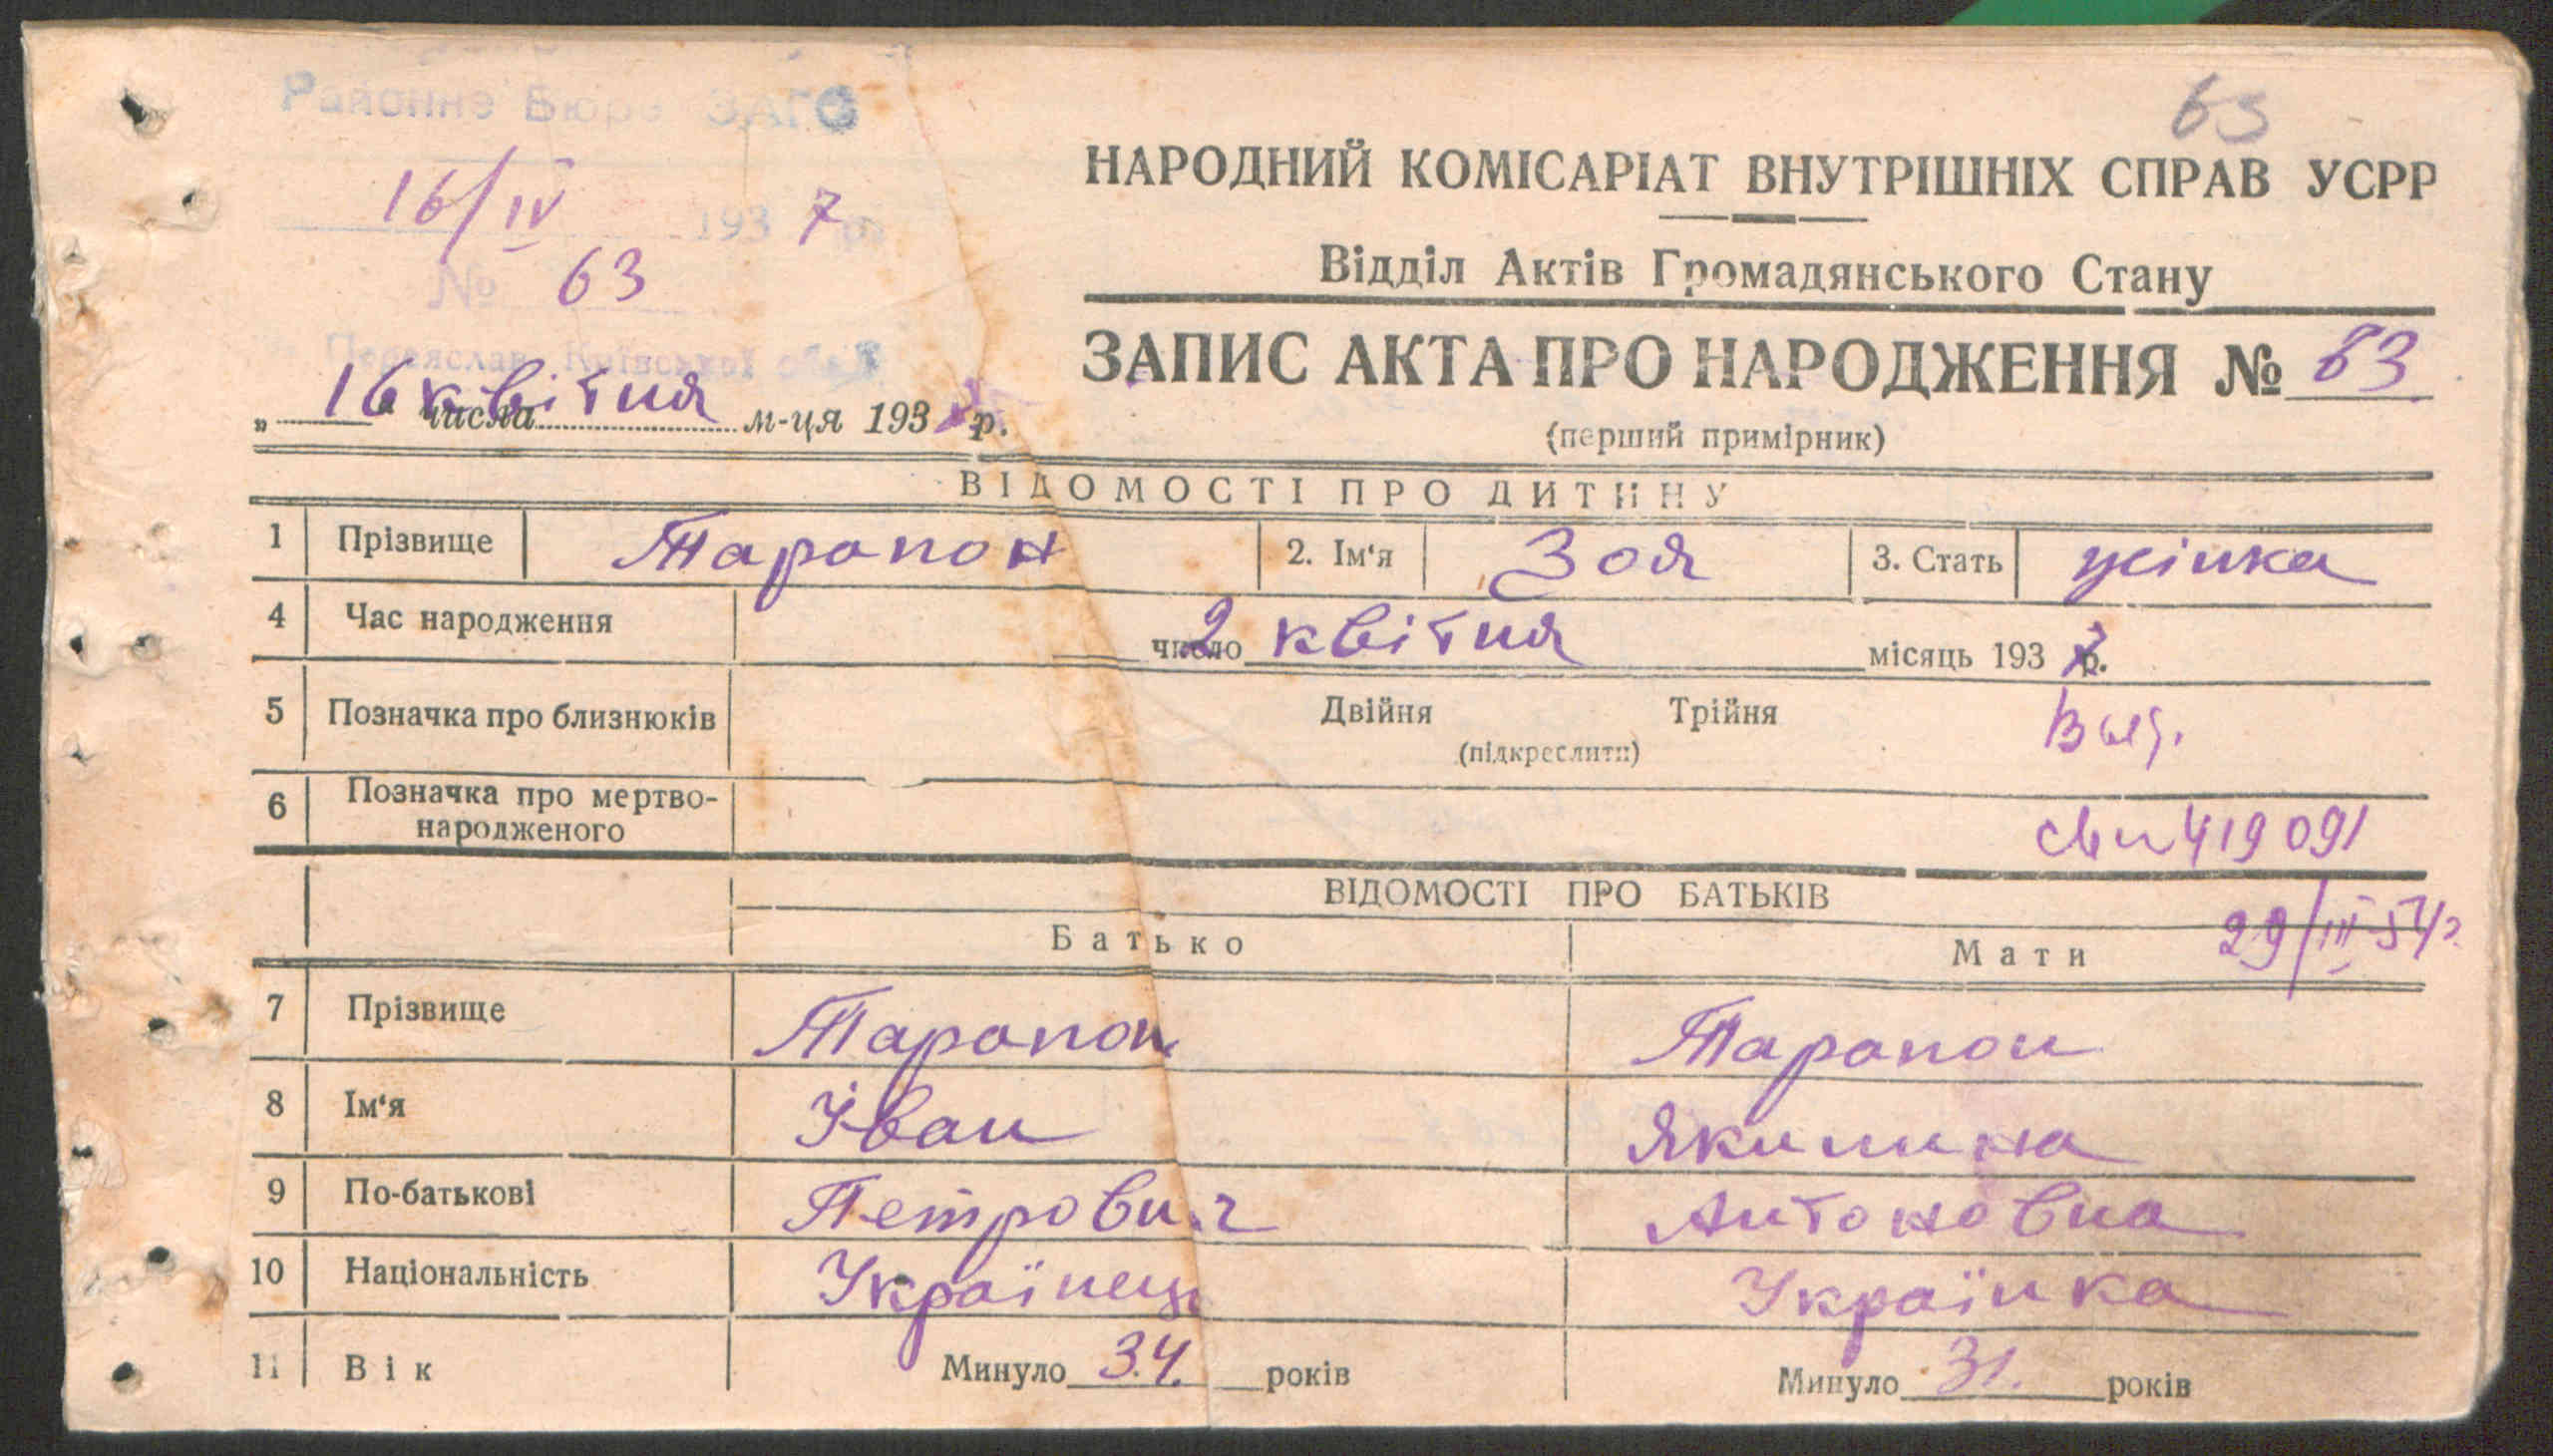 63
Районне Бюро ЗАГС
16/IV 1937 р.
№ 63
Переяслав, Київської обл.
„16“ числа квітня м-ця 1937 р.
НАРОДНИЙ КОМІСАРІАТ ВНУТРІШНІХ СПРАВ УСРР
Відділ Актів Громадянського Стану
ЗАПИС АКТА ПРО НАРОДЖЕННЯ № 63
(перший примірник)
ВІДОМОСТІ ПРО ДИТИНУ
1 Прізвище Тарапон 2. Ім‘я Зоя 3. Стать жінка
4 Час народження 2 число квітня місяць 1937 р.
5 Позначка про близнюків Двійня Трійня
(підкреслити)
6 Позначка про мертво-
народженого
419091
29/III-54
ВІДОМОСТІ ПРО БАТЬКІВ
Батько Мати
7 Прізвище Тарапон Тарапон
8 Ім‘я Іван Якилина
9 По-батькові Петрович Антоновна
10 Національність Українець Українка
11 Вік Минуло 34. років Минуло 31. років